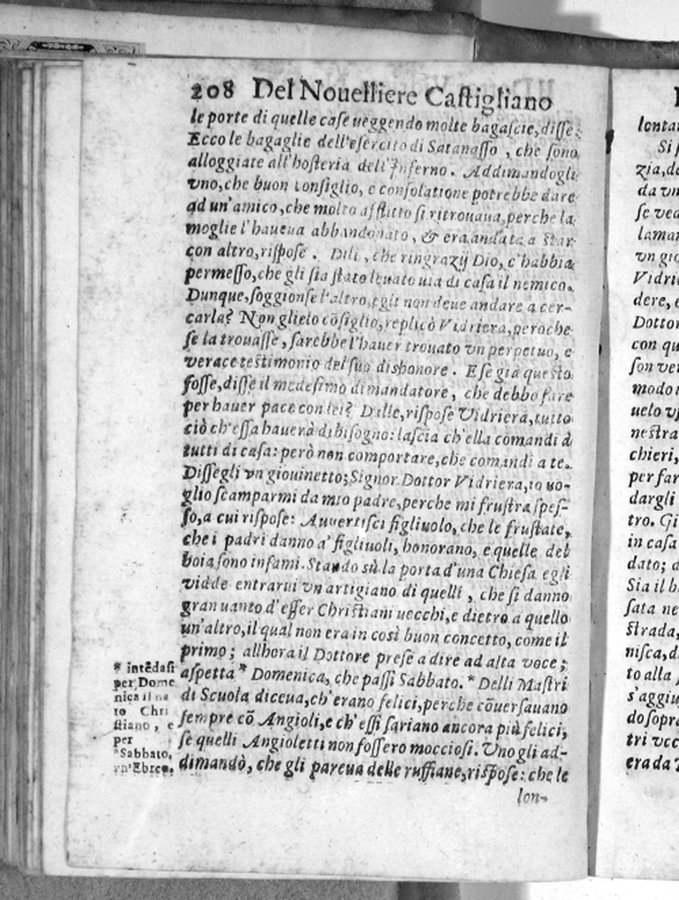 208 Del Nouelliere Castigliano
le porte di quelle case ueggendo molte bagascie, disse:
Ecco le bagaglie dell'esercito di Satanasso, che sono
alloggiate all'hosteria dell'Inferno. Addimandogli
vno, che buon consiglio, e consolatione potrebbe dare
ad un'amico, che molto afflitto si ritrouaua, perche la
moglie l'haueua abbandonato, & era andata a star
con altro, rispose. Dili, che ringrazij Dio, c'habbia
permesso, che gli sia stato leuato uia di casa il nemico.
Dunque, soggionse l'altro, egli non deue andare a cer-
carla? Non glielo cõsiglio, replicò Vidriera, peroche
se la trouasse, sarebbe l'hauer trouato vn perpetuo, e
verace testimonio del suo dishonore. E se già questo
fosse, disse il medesimo dimandatore, che debbo fare
per hauer pace con lei? Dalle, rispose Vidriera, tutto
ciò ch'essa hauerà dibisogno: lascia ch'ella comandi à
tutti di casa: però non comportare, che comandi a te.
Dissegli vn giouinetto; Signor Dottor Vidriera, io uo-
glio scamparmi da mio padre, perche mi frustra spes-
so, a cui rispose: Auuertisci figliuolo, che le frustate,
che i padri danno a' figliuoli, honorano, e quelle del
boia sono infami. Stando sù la porta d'una Chiesa egli
vidde entrarui vn artigiano di quelli, che si danno
gran uanto d'esser Christiani uecchi, e dietro a quello
un'altro, il qual non era in così buon concetto, come il
primo; allhora il Dottore prese a dire ad alta voce;
aspetta * Domenica, che passi Sabbato. * Delli Mastri
di Scuola diceua, ch'erano felici, perche cõuersauano
sempre cõ Angioli, e ch'essi sariano ancora più felici,
se quelli Angioletti non fossero mocciosi. Vno gli ad-
dimandò, che gli pareua delle ruffiane, rispose: che le
lon-
* intẽdasi
per Dome
nica il na
to Chri
stiano, e
per
*Sabbato,
vn'Ebreo,
lontan
Si
zia, d
da vn
se ved
laman
vn gio
Vidri
dere, e
Dottor
con qu
son ver
modo
uelo vs
nestra
chieri,
per far
dargli
tro. Gi
in casa
dato; a
Sia il b
sata ne
strada,
nisca, d
to alla
s'aggiu
do sopr
tri ucc
era da